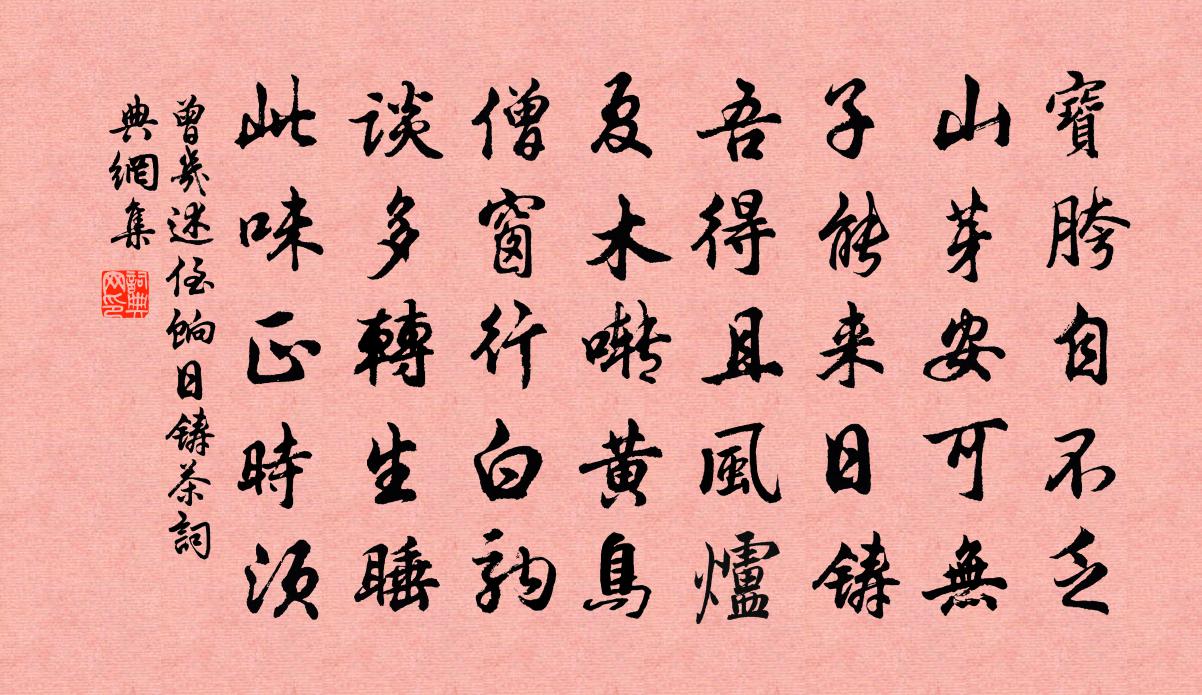 寶胯自不乏
山芽安可無
子能来日鑄
吾得且風爐
夏木啭黄鳥
僧窗行白駒
談多轉生睡
此味正時須
曾幾述侄餉日鑄茶詞
典網集
詞典
网印